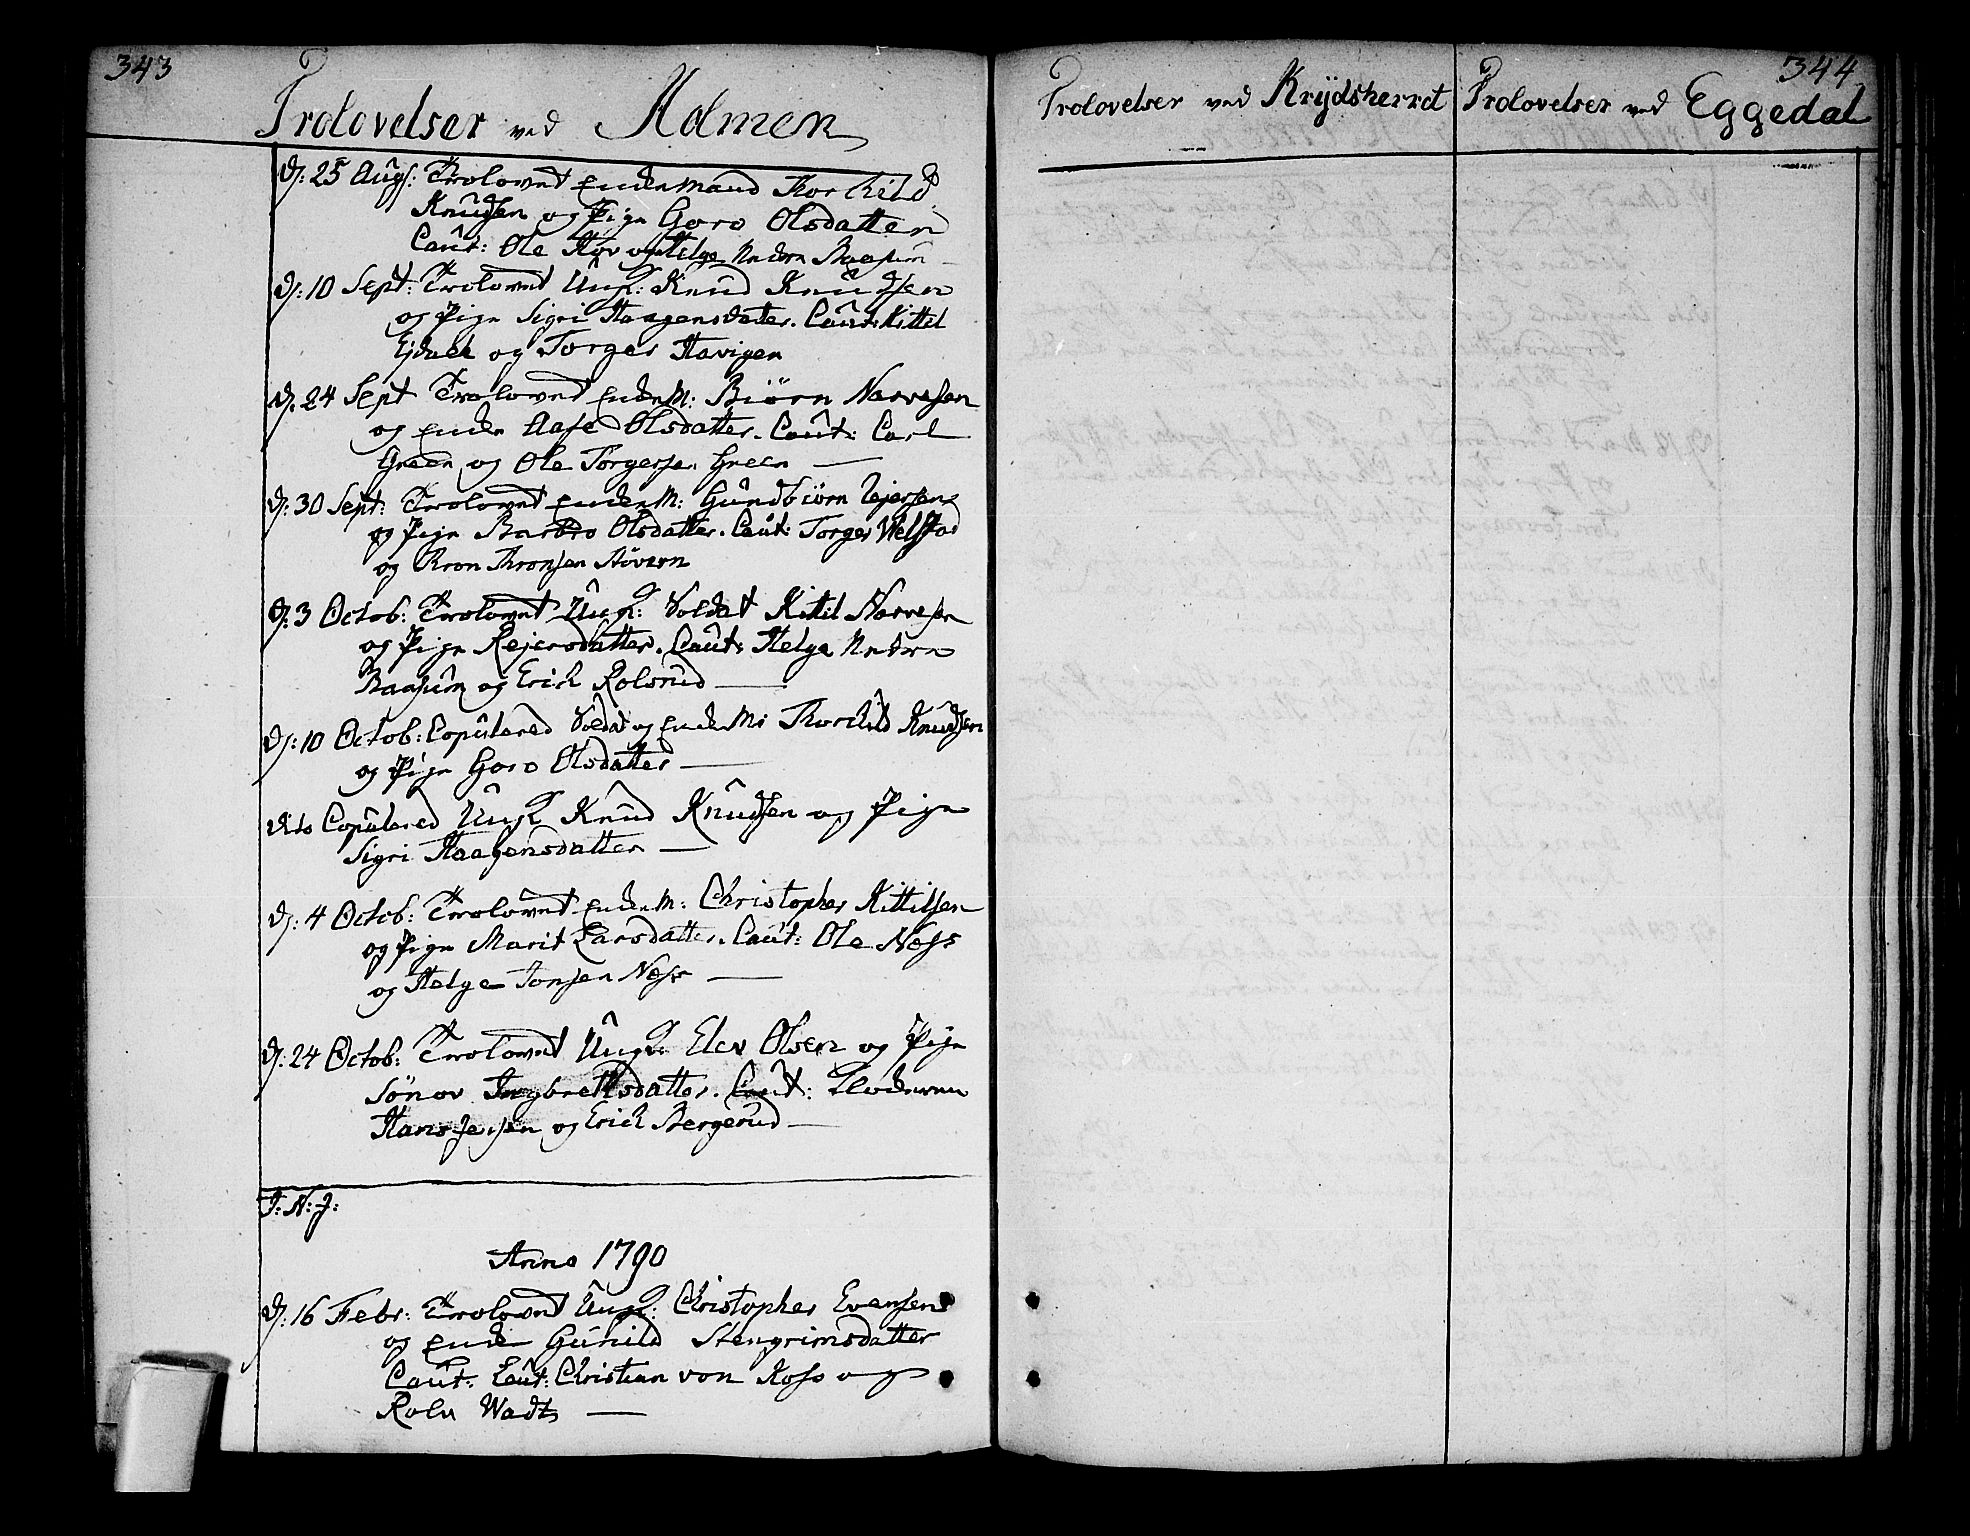 343
Trolovelser ved Holmen
D: 25 Aug: Trolovet Enckemand Thorchild
Knudsen og Pige Goro Olsdatter
Caut: Ole Hov og Helge Nedre Baasum
D: 10 Sept: Trolovet Ungk: Knud Knudsen
og Pige Sigri Haagensdatter. Caut: Kittil
Ejdal og Torger Havigen
D: 24 Sept Trolovet EnckeM: Biörn Narvesen
og Encke Aase Olsdatter. Caut: Carl
Green og Ole Torgersen Green
D: 30 Sept: Trolovet EnckeM: Gundbiörn Rejersen
og Pige Barbro Olsdatter. Caut: Torger Velstad
og Tron Tronsen
D: 3 Octob: Trolovet Ungk: Soldat Kittil Narvesen
og Pige Rejersdatter. Caut: Helge Nedre
Baasum og Erich Rolsrud
D: 10 Octob: Copulered Soldat og EnckeM: Thorchild Knudsen
og Pige Goro Olsdatter
Dito Copulered Ungk Knud Knudsen og Pige
Sigri Haagensdatter
D: 4 Octob: Trolovet EnckeM: Christopher Kittilsen
og Pige Marit Larsdatter. Caut: Ole Næss
og Helge Jonsen Næss
D: 24 Octob: Trolovet Ungk: Elev Olsen og Pige
Sönov Ingebretlsdatter. Caut:
Hans Jensen og Erich Bergerud
J: N: J:
Anno 1790
D: 16 Febr: Trolovet Ungk: Christopher Evensen
og Encke Gunild Stengrimsdatter
Caut: Leut: Christian von Koss og
Rolv Wadts
344
Trolovelser ved Krydsherret
Trolovelser ved Eggedal